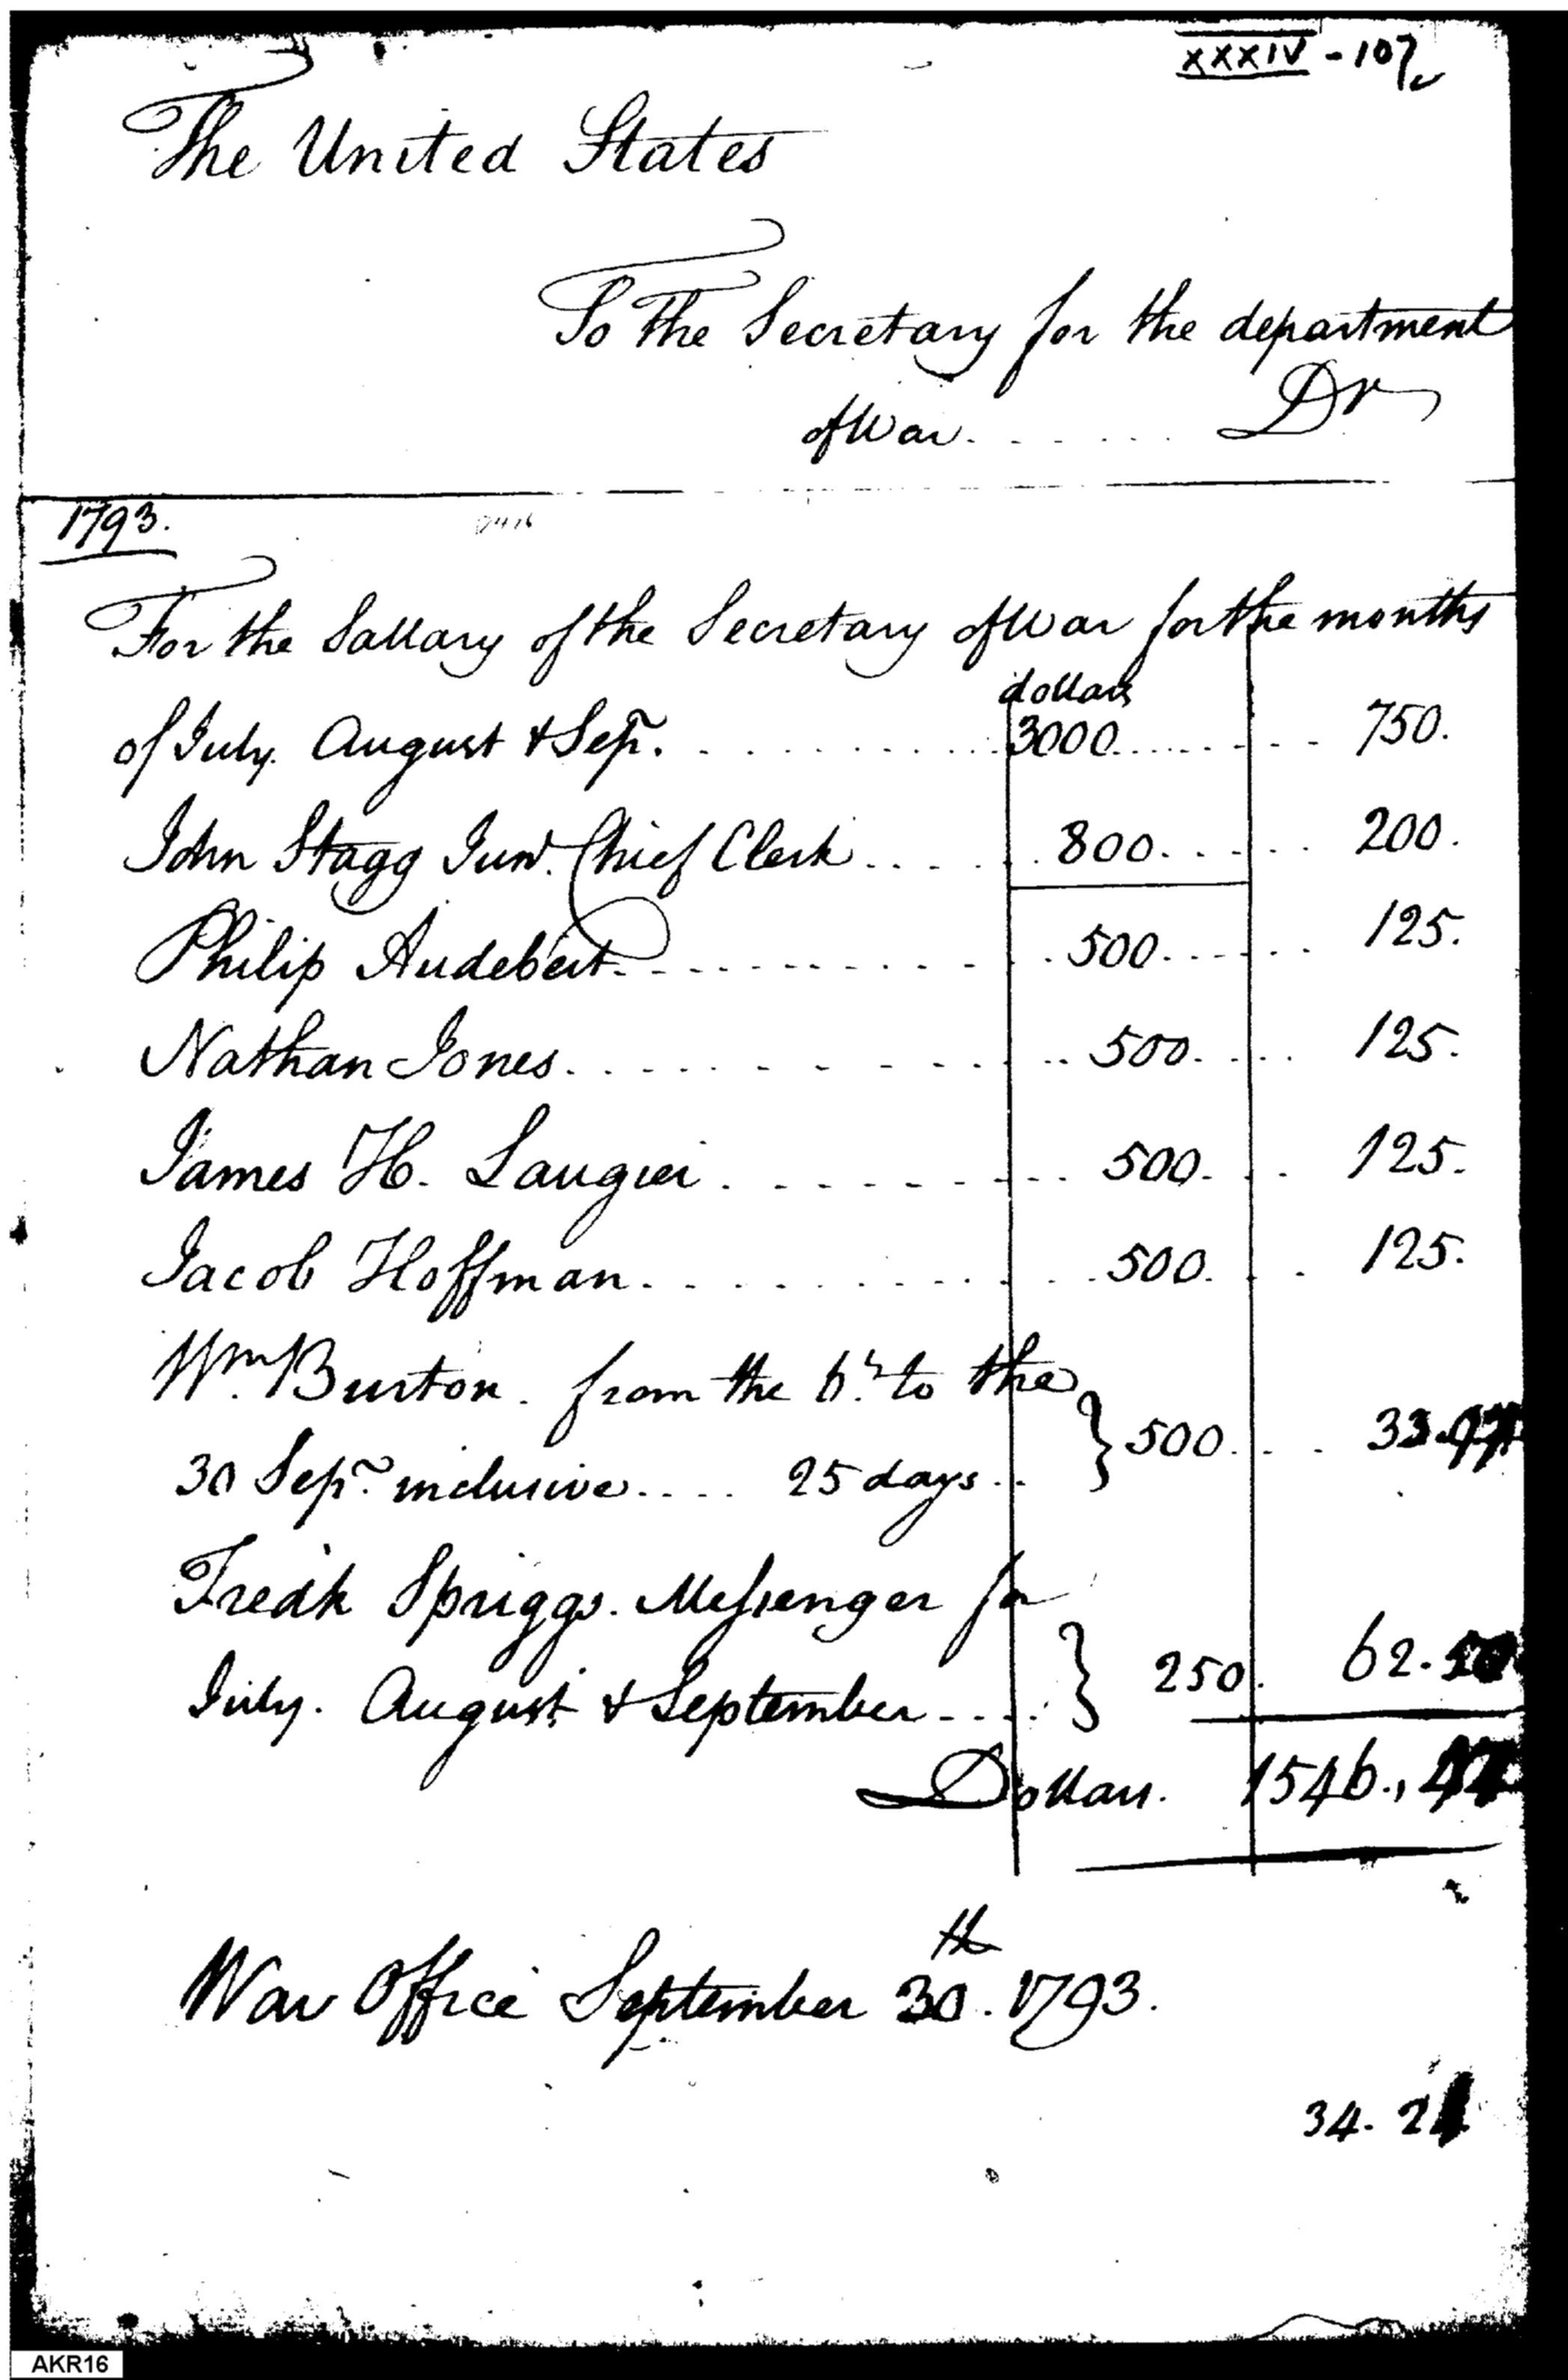 XXXIV - 107
The United States
To the Secretary for the department
of War. . . . . . . Dr
1793.
For the Sallary of the Secretary of War for the months
dollars
of July. August & Sepr. . . . . . . . . . . 3000 . . . . . . . . 750.
John Stagg Junr. Chief Clerk . . . . . 800. . . . . . 200.
Philip Audebert. . . . . . . . . . . . 500. . . . . . 125.
Nathan Jones. . . . . . . . . . . . 500. . . . . 125.
James H. Laugier . . . . . . . . . . . 500. . . . 125.
Jacob Hoffman. . . . . . . . . . . . . 500. . . . 125.
Wm. Burton. from the 6th. to the
30 Sepr. inclusive. . . . 25 days . . } 500. . . . 33.
Fredk Spriggs. Messenger for
July. August & September . . . . } 250. 62.50
Dollars. 1546.,
War Office September 30th. 1793.
34. 2
AKR16